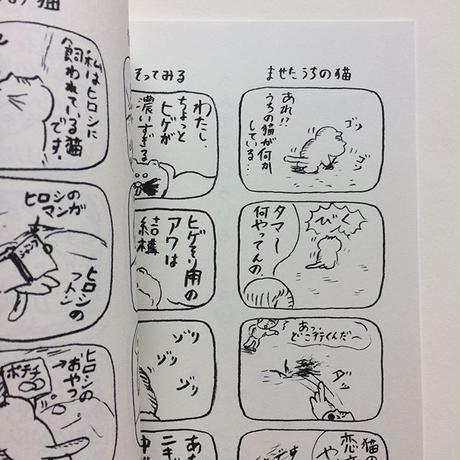 ませたうちの猫
あれ!?
うちの猫が何か
している…
ゴソ
ゴソ
びく
タマー
何やってんの。
あっ、
どこ行くんだ〜
ダッ
猫の
恋
そってみる
わたし、
ちょっと
ヒゲが
濃いすぎる
ヒゲそり用の
アワは
結構
ゾリ
ゾリ
ゾリ
猫
私はヒロシに
飼われている猫
です。
ヒロシのマンガ
ヒロシの
フトン
ヒロシの
おやつ
ポテチ